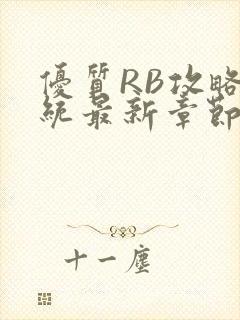 優質RB攻略
統最新章節
十一塵